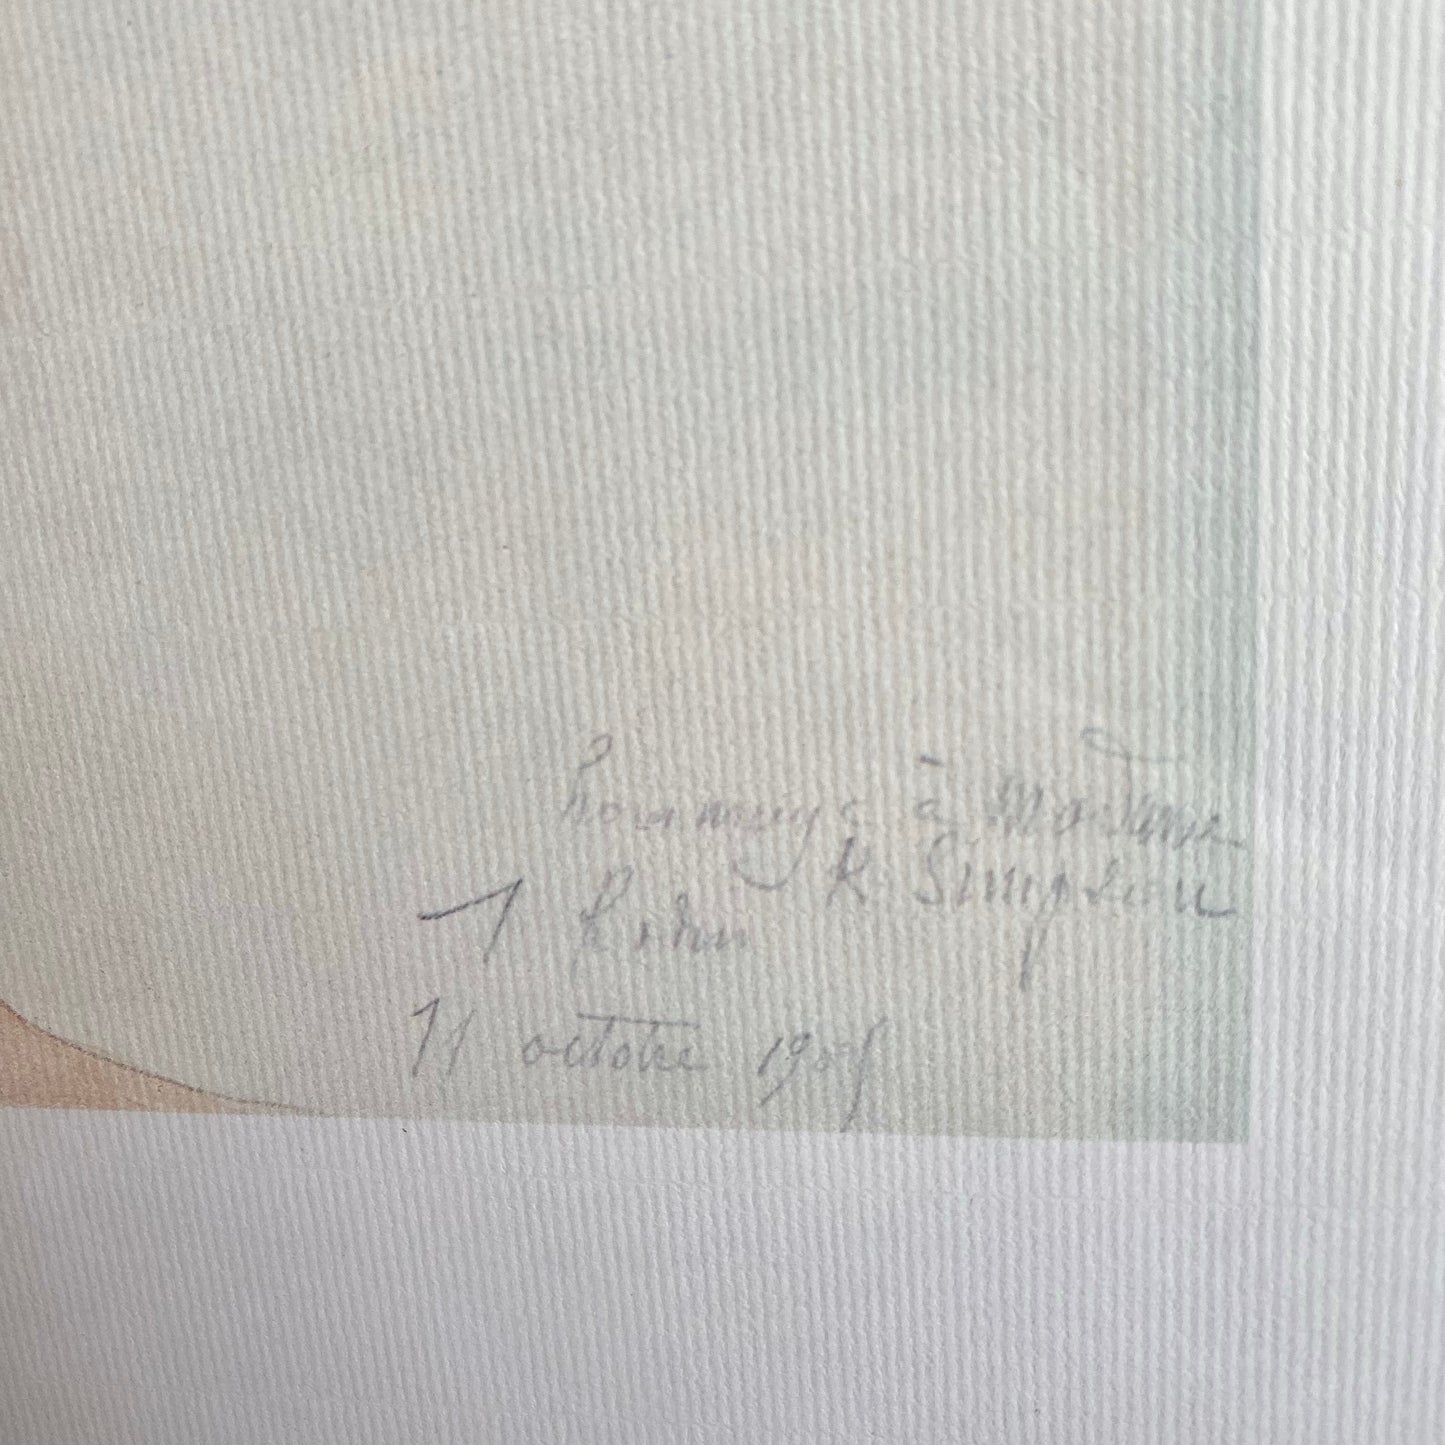 hommage à Madame
K Simpson
A Rodin
11 octobre 190